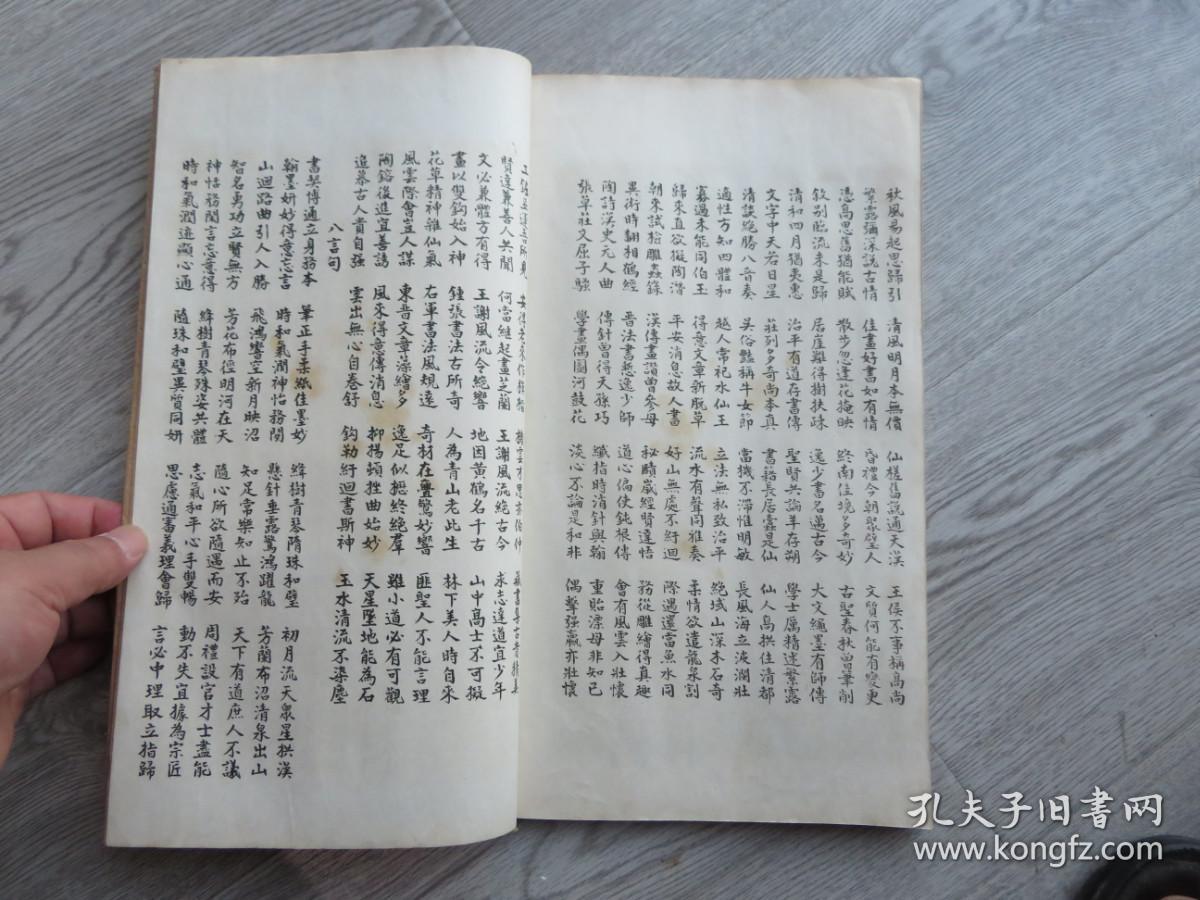 秋風易起思歸引 清風明月本無價 仙槎舊說通天漢 王侯不事稱高尚
繁露彌深說古情 佳畫好書如有情 昏禮今朝聚璧人 文質何能有變更
憑高思舊猶能賦 散步忽逢花掩映 終南佳境多奇妙 古聖春秋曾筆削
敘別臨流未是歸 居崖難得樹扶疎 逸少書名邁古今 大文繩墨有師傳
清和四月猶夷惠 治平有道存書傳 聖賢共論羊存朔 學士厲精述繁露
文字中天若日星 莊列多奇尚本真 書籍長居蠹是仙 仙人烏拱住清都
清談絕勝八音奏 吳俗豔稱牛女節 當機不滯惟明敏 長風海立波瀾壯
適性方知四體和 越人常祀水仙王 立法無私致治平 絕域山深木石奇
寡過未能同伯玉 得意文章新脫草 流水有聲同雅奏 柔情欲遣龍泉割
歸來直欲擬陶潛 平安消息故人書 好山無處不紆迴 際遇還當魚水同
朝來試拾雕蟲錄 漢傳畫讚曾參母 秘賾咸經賢達悟 務從雕繪得真趣
異術時翻相鶴經 晉法書懸逸少師 道心偏使鈍根傳 會有風雲入壯懷
陶詩漢史元人曲 傳針曾得天孫巧 纖指時消針與翰 重貽漂母非知己
張草莊文屈子騷 學畫偶圖河鼓花 淡心不論是和非 偶擊强嬴亦壯懷
賢達兼善人共聞 何當繼起畫芝蘭 王謝風流絕古今 求志達道宜少年
文必兼體方有得 王謝風流令絕響 地因黃鶴名千古 山中高士不可擬
畫以雙鈎始入神 鍾張書法古所奇 人為青山老此生 林下美人時自來
花草精神雜仙氣 右軍書法風規遠 奇材在爨驚妙響 匪聖人不能言理
風雲際會豈人謀 東晉文章藻繪多 逸足似摠終絕羣 雖小道必有可觀
陶鎔後進宜善誘 風來得意傳消息 抑揚頓挫曲始妙 天星墜地能為石
追慕古人貴自强 雲出無心自卷舒 鈎勒紆迴書斯神 玉水清流不染塵
八言句
書契博通立身務本 筆正手柔紙佳墨妙 絳樹青琴隋珠和璧 初月流天衆星拱漢
翰墨妍妙得意忘言 時和氣潤神怡務閒 懸針垂露驚鴻躍龍 芳蘭布沼清泉出山
山迴路曲引人入勝 飛鴻響空新月映沼 知足常樂知止不殆 天下有道庶人不議
智名勇功立賢無方 芳花布徑明河在天 隨心所欲隨遇而安 周禮設官才士盡能
神怡務閒言忘意得 絳樹青琴珠姿共體 志氣和平心手雙暢 動不失宜據為宗匠
時和氣潤迹顯心通 隨珠和璧異質同妍 思慮通審義理會歸 言必中理取立指歸
孔夫子旧书网
www.kongfz.com